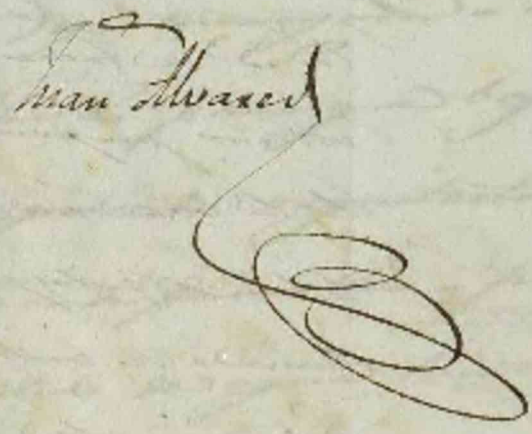 Juan Alvarez